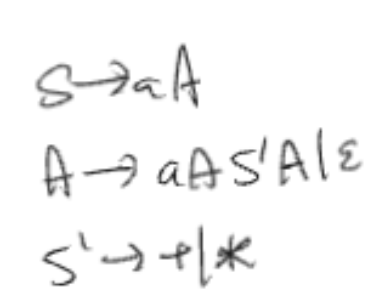 S→aA
A→aAS'A|ε
S'→+|*